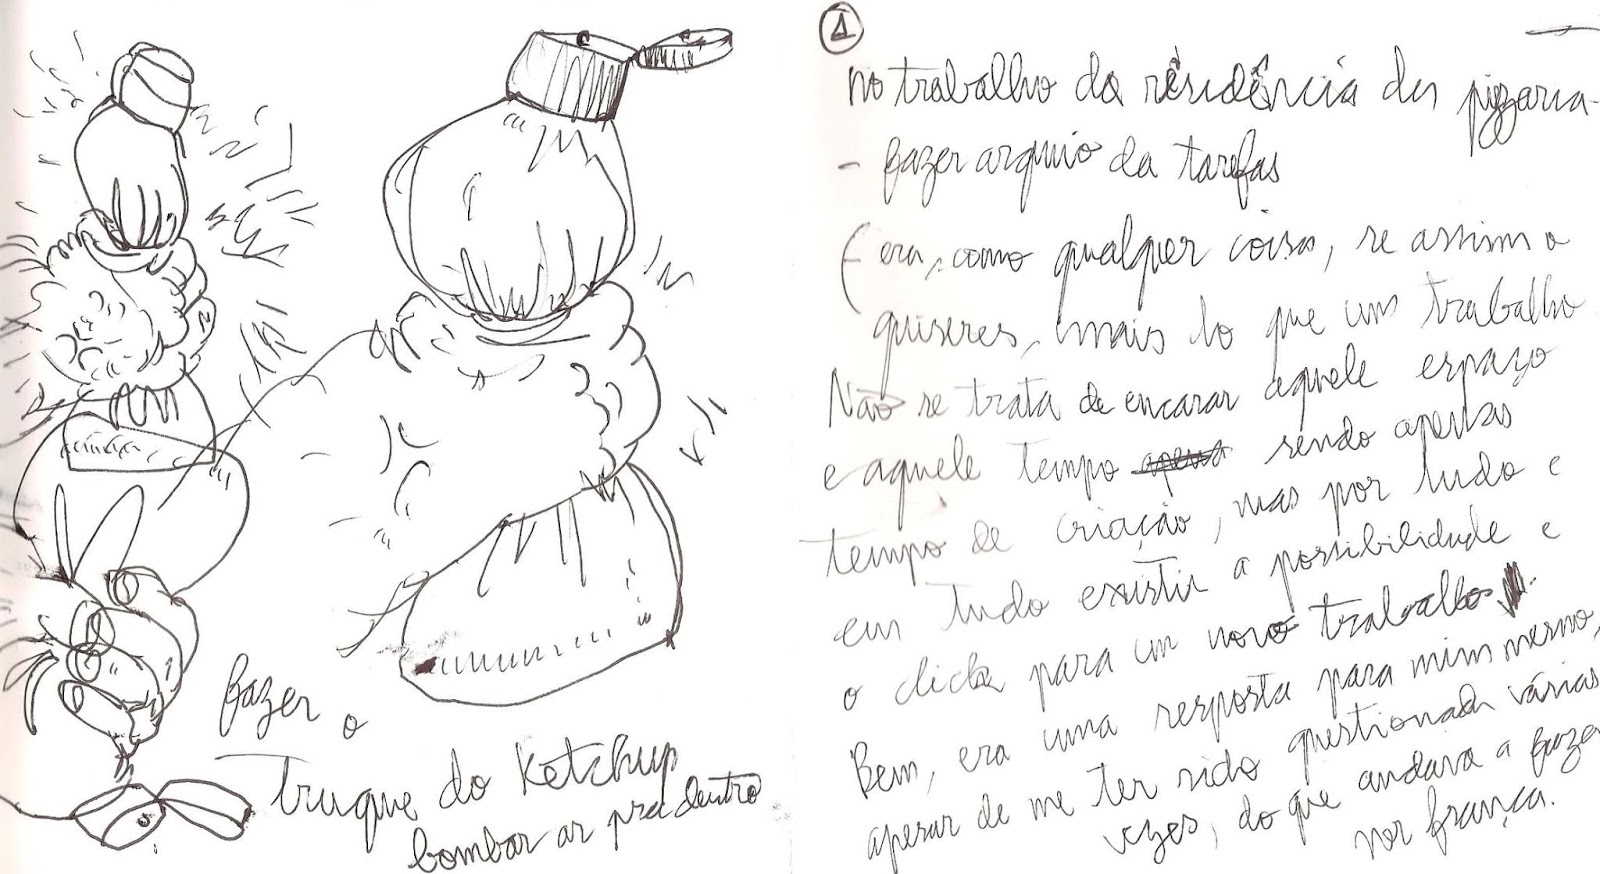 fazer o
Truque do Ketchup
bombar ar pra dentro
1
no trabalho da residência da pizzaria-
- fazer arquivo da tarefas
( era, como qualquer coisa, se assim o
quiseres, mais do que um trabalho
Não se trata de encarar aquele espaço
e aquele tempo apenas sendo apenas
tempo de criação, mas por tudo e
em tudo existir a possibilidade e
o click para um novo trabalho
Bem, era uma resposta para mim mesmo,
apesar de me ter sido questionada várias
vezes, do que andava a fazer
por frança.